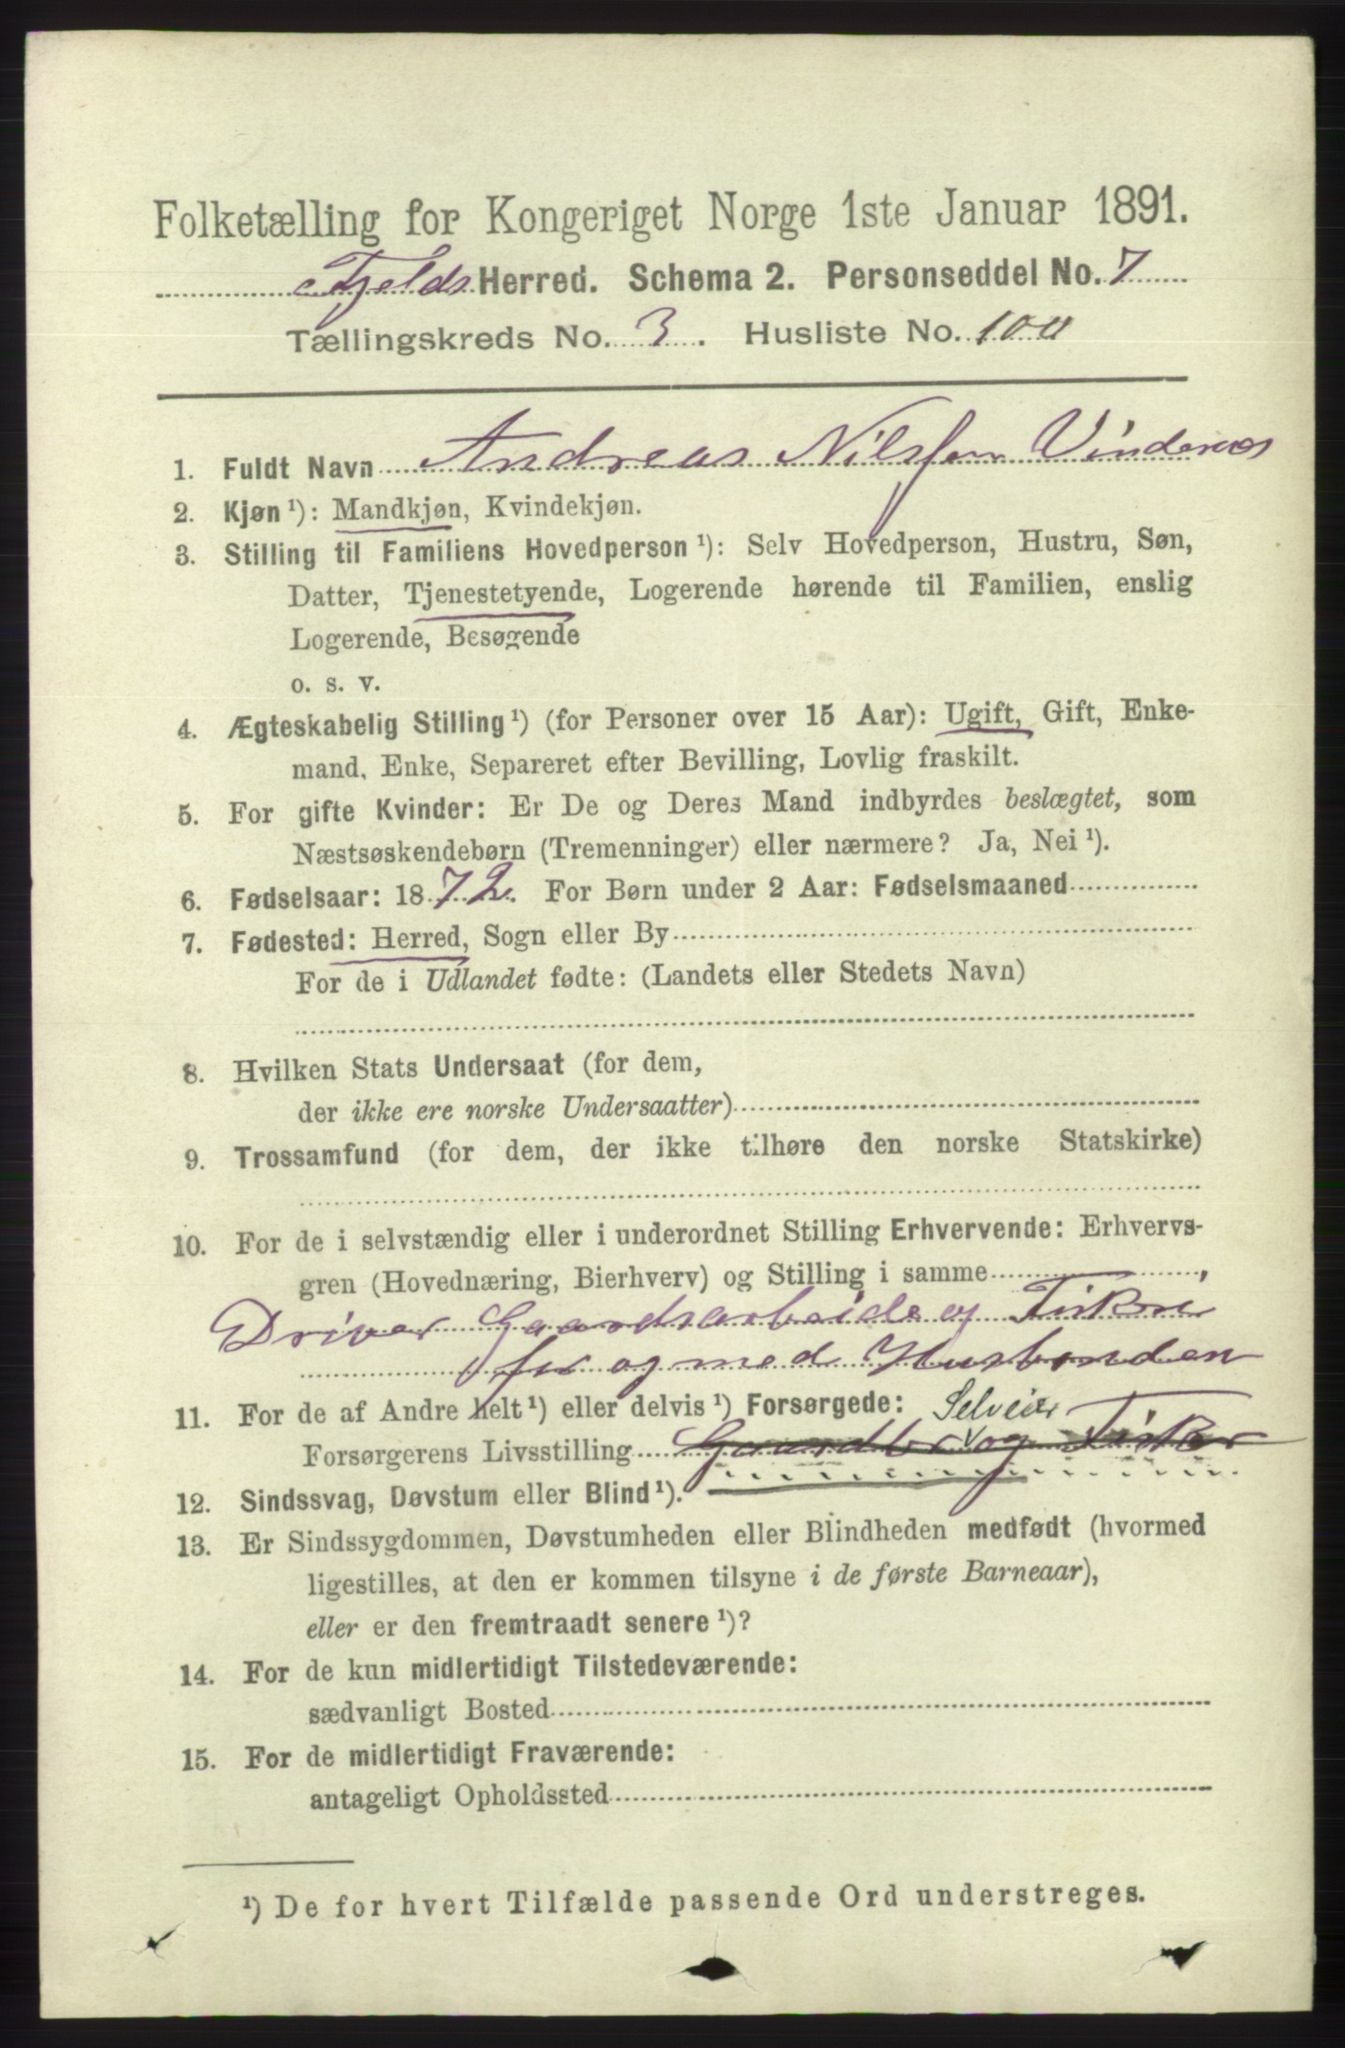 Folketælling for Kongeriget Norge 1ste Januar 1891.
Fjelds Herred. Schema 2. Personseddel No. 7
Tællingskreds No. 3. Husliste No. 100
1. Fuldt Navn Andreas Nilssen Vindenes
2. Kjøn ¹): Mandkjøn, Kvindekjøn.
3. Stilling til Familiens Hovedperson ¹): Selv Hovedperson, Hustru, Søn,
Datter, Tjenestetyende, Logerende hørende til Familien, enslig
Logerende, Besøgende
o. s. v.
4. Ægteskabelig Stilling ¹) (for Personer over 15 Aar): Ugift, Gift, Enke-
mand, Enke, Separeret efter Bevilling, Lovlig fraskilt.
5. For gifte Kvinder: Er De og Deres Mand indbyrdes beslægtet, som
Næstsøskendebørn (Tremenninger) eller nærmere? Ja, Nei ¹).
6. Fødselsaar: 1872. For Børn under 2 Aar: Fødselsmaaned
7. Fødested: Herred, Sogn eller By
For de i Udlandet fødte: (Landets eller Stedets Navn)
8. Hvilken Stats Undersaat (for dem,
der ikke ere norske Undersaatter)
9. Trossamfund (for dem, der ikke tilhøre den norske Statskirke)
10. For de i selvstændig eller i underordnet Stilling Erhvervende: Erhvervs-
gren (Hovednæring, Bierhverv) og Stilling i samme
Driver Gaardsarbeide og Fiskeri
for og med Husbonden
11. For de af Andre helt ¹) eller delvis ¹) Forsørgede: Selveier
Forsørgerens Livsstilling Gaardbr og Fisker
12. Sindssvag, Døvstum eller Blind ¹).
13. Er Sindssygdommen, Døvstumheden eller Blindheden medfødt (hvormed
ligestilles, at den er kommen tilsyne i de første Barneaar),
eller er den fremtraadt senere ¹)?
14. For de kun midlertidigt Tilstedeværende:
sædvanligt Bosted
15. For de midlertidigt Fraværende:
antageligt Opholdssted
¹) De for hvert Tilfælde passende Ord understreges.